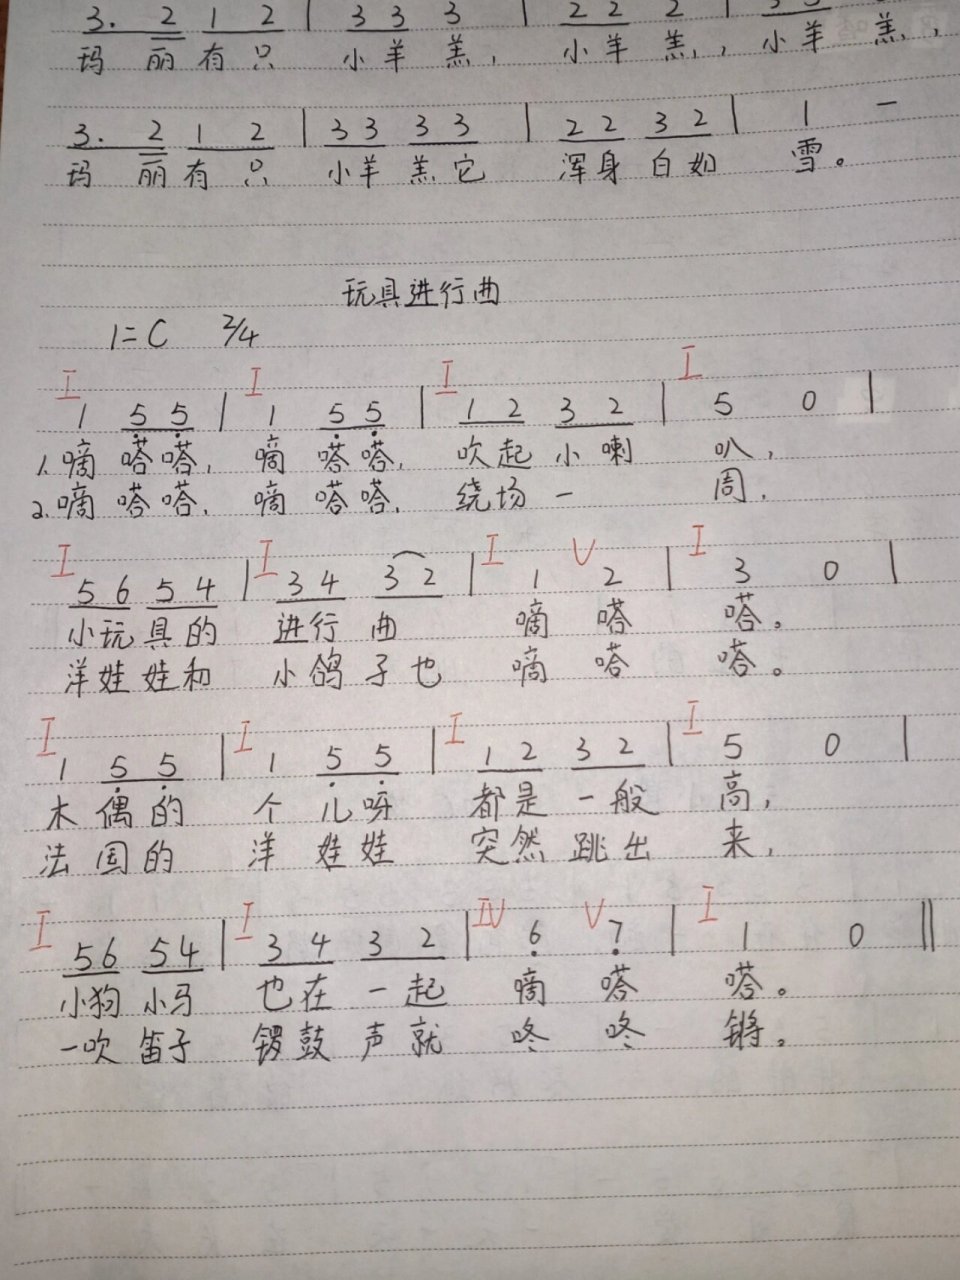 3. 2 1 2 | 3 3 3 | 2 2 2 |
玛 丽 有 只 小 羊 羔, 小 羊 羔, 小 羊 羔,
3. 2 1 2 | 3 3 3 3 | 2 2 3 2 | 1 —
玛 丽 有 只 小羊 羔它 浑身 白如 雪。
玩具进行曲
1=C 2/4
I I I I
1 5̣ 5̣ | 1 5̣ 5̣ | 1 2 3 2 | 5 0 |
1.嘀 嗒嗒, 嘀 嗒嗒, 吹起 小喇 叭,
2.嘀 嗒嗒, 嘀 嗒嗒, 绕场 一 周,
I I I V I
5 6 5 4 | 3 4 3 2 | 1 2 | 3 0 |
小玩具的 进行 曲 嘀 嗒 嗒。
洋娃娃和 小鸽子也 嘀 嗒 嗒。
I I I I
1 5̣ 5̣ | 1 5̣ 5̣ | 1 2 3 2 | 5 0 |
木 偶的 个 儿呀 都是 一般 高,
法 国的 洋 娃娃 突然 跳出 来,
I I IV V I
5 6 5 4 | 3 4 3 2 | 6̣ 7̣ | 1 0 ‖
小狗 小马 也在 一起 嘀 嗒 嗒。
一吹 笛子 锣鼓 声就 咚 咚 锵。